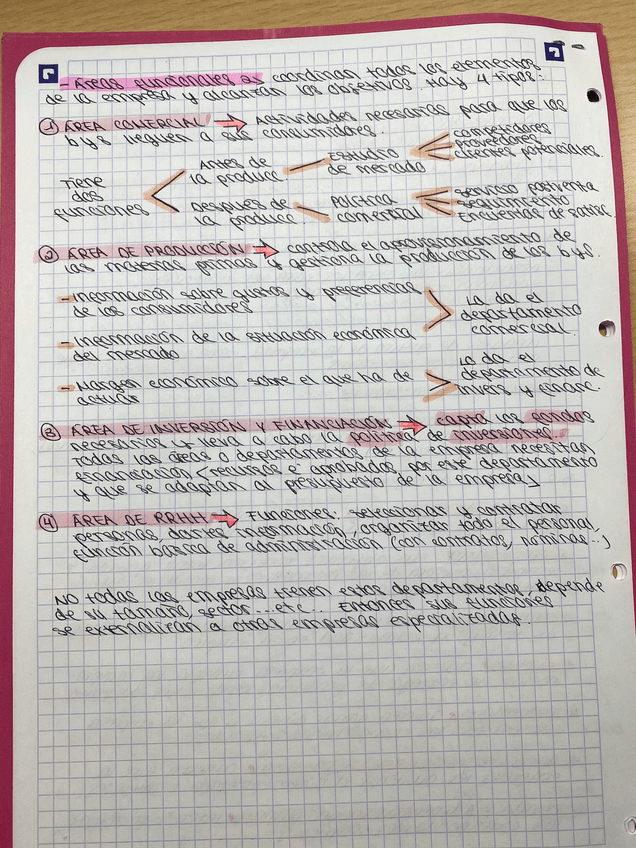 - Áreas funcionales → coordinan todos los elementos
de la empresa y alcanzan los objetivos. Hay 4 tipos:
① ÁREA COMERCIAL → Actividades necesarias para que los
b y s lleguen a sus consumidores.
Tiene dos funciones
Antes de la producc.
Estudio de mercado
competidores
proveedores
clientes potenciales.
Después de la produc.
Política comercial
Servicio postventa
Seguimiento
Encuestas de satisf.
② ÁREA DE PRODUCCIÓN → controla el aprovisionamiento de
las materias primas y gestiona la producción de los b y s.
- Información sobre gustos y preferencias
de los consumidores
- Información de la situación económica
del mercado
La da el
departamento
comercial.
- Margen económico sobre el que ha de
actuar
Lo da el
departamento de
invers y financ.
③ ÁREA DE INVERSIÓN Y FINANCIACIÓN → capta los fondos
necesarios y lleva a cabo la política de inversiones.
Todas las áreas o departamentos de la empresa necesitan
financiación (recursos € aprobados por este departamento
y que se adaptan al presupuesto de la empresa)
④ ÁREA DE RRHH → Funciones: seleccionar y contratar
personas, darles información, organizar todo el personal,
función básica de administración (con contratos, nóminas..)
NO todas las empresas tienen estos departamentos, depende
de su tamaño, sector...etc... Entonces sus funciones
se externalizan a otras empresas especializadas.